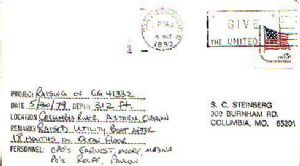 5 OCT
GIVE
THE UNITED
PROJECT RAISING OF CG 41332
DATE: 5/30/79 DEPTH 312 FT
LOCATION: COLUMBIA RIVER, ASTORIA OREGON
REMARKS RAISED UTILITY BOAT AFTER
18 MONTHS ON RIVER FLOOR
PERSONNEL: CPO'S EARNEST,
PO'S
S. C. STEINBERG
300 BURNHAM RD.
COLUMBIA, MO. 65201